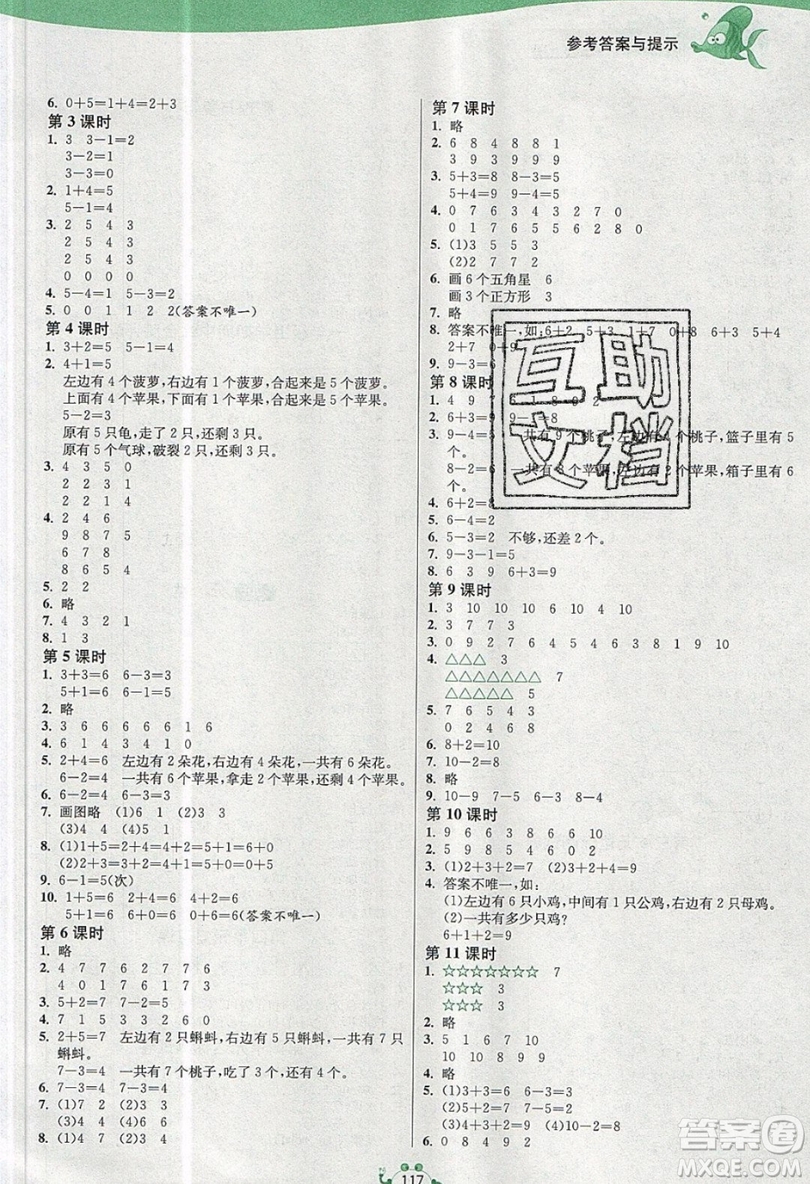 参考答案与提示
6. 0+5=1+4=2+3
第 3 课时
1. 3  3-1=2
3-2=1
3-3=0
2. 1+4=5
5-1=4
3. 2 5 4 3
2 5 4 3
2 5 4 3
0 0 0 0
4. 5-4=1  5-3=2
5. 0 0 1 1 2 2(答案不唯一)
第 4 课时
1. 3+2=5  5-1=4
2. 4+1=5
左边有 4 个菠萝,右边有 1 个菠萝,合起来是 5 个菠萝。
上面有 4 个苹果,下面有 1 个苹果,合起来是 5 个苹果。
5-2=3
原有 5 只龟,走了 2 只,还剩 3 只。
原有 5 个气球,破裂 2 只,还剩 3 只。
3. 4 3 5 0
2 2 3 1
2 2 1 4
4. 2 4 6
9 8 7 5
6 7 8
8 6 5 4
5. 2 2
6. 略
7. 4 3 2 1
8. 1 3
第 5 课时
1. 3+3=6  6-3=3
5+1=6  6-1=5
2. 略
3. 3 6 6 6 6 6 1 6
4. 6 1 4 3 4 1 0
5. 2+4=6  左边有 2 朵花,右边有 4 朵花,一共有 6 朵花。
6-2=4  一共有 6 个苹果,拿走 2 个苹果,还剩 4 个苹果。
6. 6-2=4  6-3=3
7. 画图略  (1)6  (2)3 3
(3)4 4  (4)5 1
8. (1)1+5=2+4=4+2=5+1=6+0
(2)2+3=3+2=4+1=5+0
9. 6-1=5(次)
10. 1+5=6  2+4=6  3+3=6  4+2=6
5+1=6  6+0=6  0+6=6(答案不唯一)
第 6 课时
1. 略
2. 4 7 7 6 2 7 6 7
4 0 1 7 6 1 7 7
3. 5+2=7  7-2=5
4. 7 1 5 3 3 2 6 0
5. 2+5=7  左边有 2 只蝌蚪,右边有 5 只蝌蚪,一共有 7 只
蝌蚪。
7-3=4  一共有 7 个桃子,吃了 3 个,还有 4 个。
6. 7-3=4  7-4=3
7. (1)7 2  (2)3 3
(3)4 4  (4)0 7
8. (1)4 7  (2)5 7
第 7 课时
1. 略
2. 6 8 4 8 8 1
3 9 3 9 9 9
3. 5+3=8  8-5=3
5+4=9  9-4=5
4. 0 7 6 3 4 3 2 7 0
0 1 7 6 5 5 6 2 8 0
5. (1)3 5 5 3
(2)2 7 7 2
6. 画 6 个五角星  6
画 3 个正方形  3
7. 略
8. 答案不唯一,如:6+2  3+5  1+7  0+8  6+3  5+4
2+7  0+9
9. 9-3=6
第 8 课时
1. 4 9 1 8 9 2
2. 6+3=9  9-1=8
3. 9-4=5  一共有 9 个桃子,左边有 4 个桃子,篮子里有 5
个。
8-2=6  一共有 8 个苹果,左边有 2 个苹果,箱子里有 6
个。
4. 6+2=8
5. 6-4=2
6. 5-3=2  不够,还差 2 个。
7. 9-3-1=5
8. 6 3 9  6+3=9
第 9 课时
1. 3 10 10 10 6 10
2. 3 7 7 3
3. 0 9 2 7 6 4 5 4 6 3 8 1 9 0
4. △△△ 3
△△△△△△△ 7
△△△△△ 5
5. 7 6 5 4 3
0 2 4 6 8
6. 8+2=10
7. 4+3=7  10-7=3
8. 略
9. 10-9  7-5  6-3  8-4
第 10 课时
1. 9 6 6 3 8 6 6 10
2. 5 9 8 5 4 6 0 2
3. (1)3+2+2=7  (2)3+2+4=9
4. 答案不唯一,如:
(1)左边有 6 只小鸡,中间有 1 只公鸡,右边有 2 只母鸡。
(2)一共有多少只鸡?
6+1+2=9
第 11 课时
1. ☆☆☆☆☆☆☆ 7
☆☆☆ 3
☆☆☆ 3
2. 略
3. 5 1 6 7 10
10 10 8 9 9
4. 略
5. (1)3+3=6  (2)9-4=5
(3)5+4=9  (4)10-2=8
6. 0 8 4 9 2
互助
文档
117
答案圈
MXQE.COM